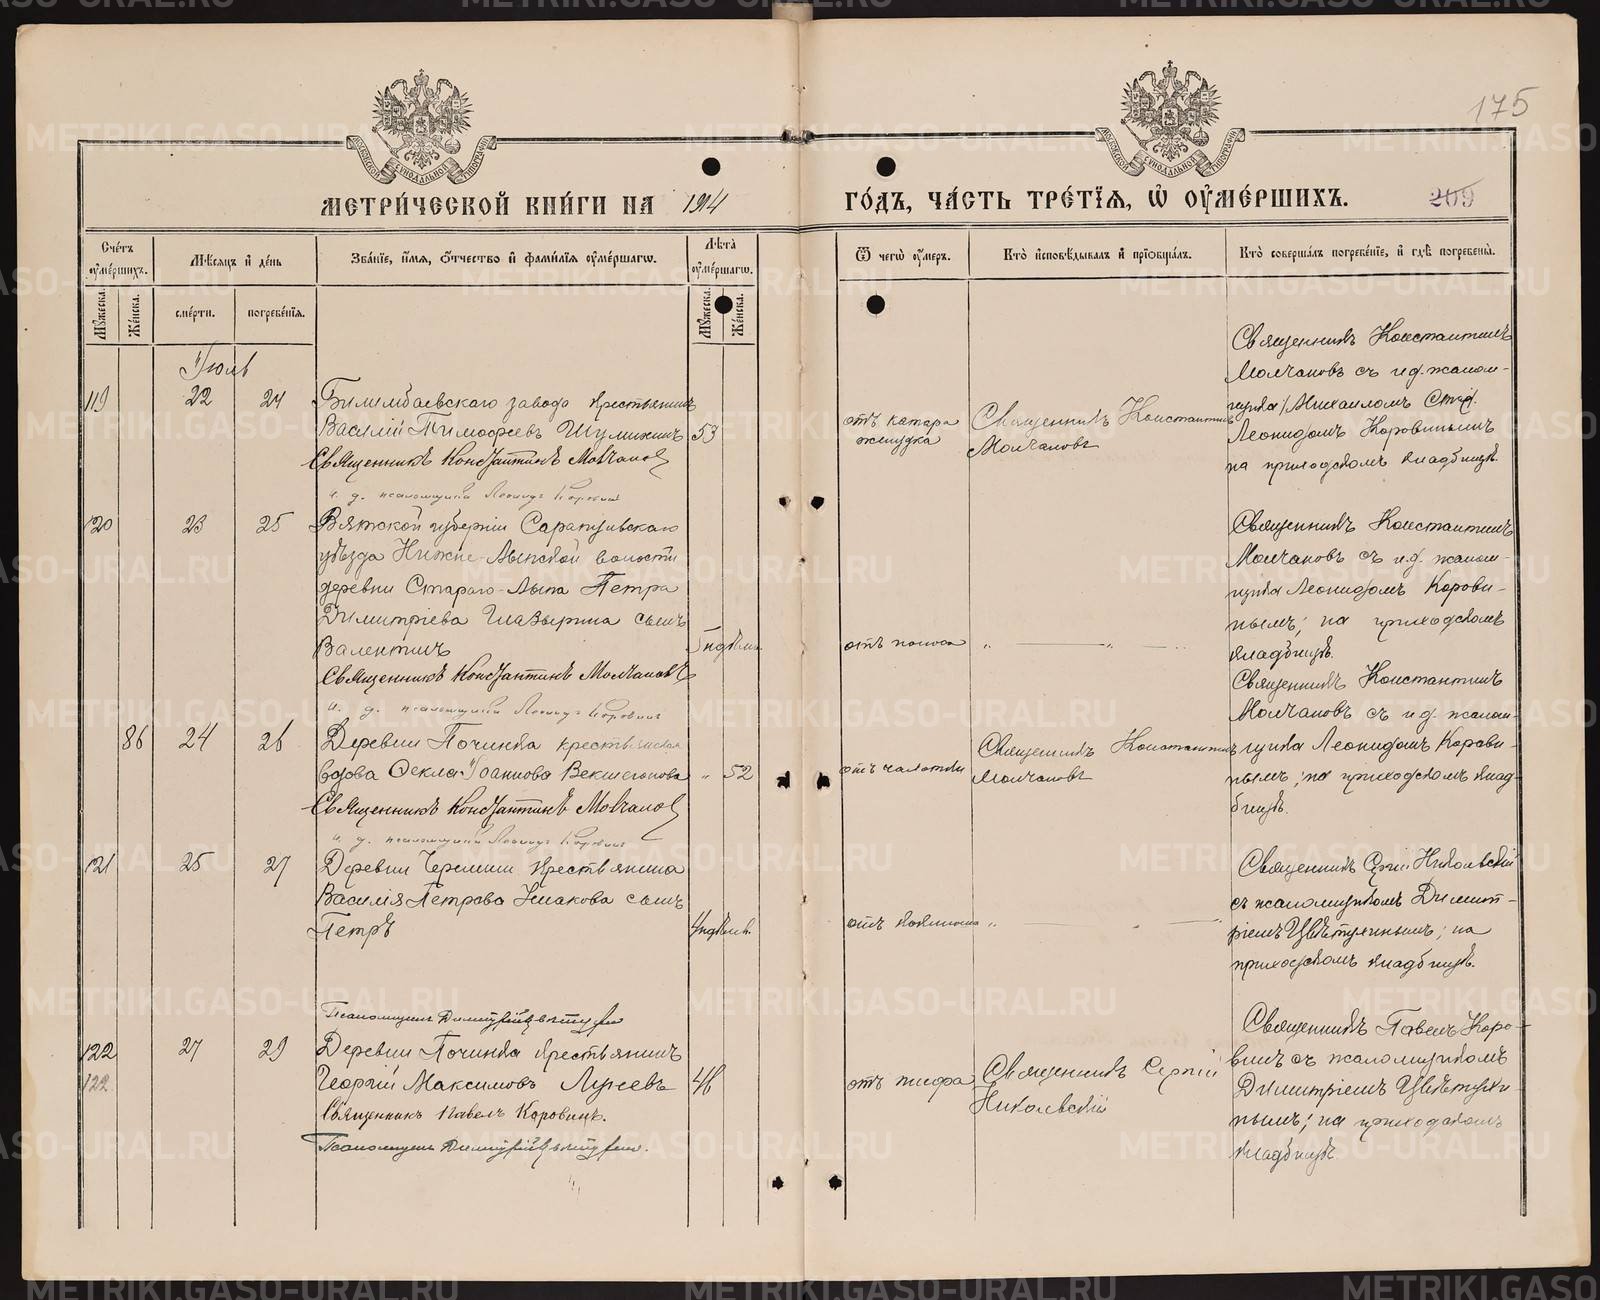 175
МЕТРИ́ЧЕСКОЙ КНИ́ГИ НА 1914 ГО́ДЪ, ЧА́СТЬ ТРЕ́ТІЯ, Ѡ ОУМЕ́РШИХЪ.
209
Сче́тъ оуме́ршихъ.
Мѣ́сяцъ и де́нь
Зва́ніе, и́мя, о́тчество и фами́лія оуме́ршагѡ.
Лѣта̀ оуме́ршагѡ.
Ѿ чегѡ̀ оу́меръ.
Кто̀ исповѣ́дывалъ и пріобща́лъ.
Кто̀ соверша́лъ погребе́ніе, и гдѣ̀ погребены̀.
Мꙋ́жеска.
Же́нска.
сме́рти.
погребе́нія.
Мꙋ́жеска.
Же́нска.
Іюль
119 22 24
Билимбаевскаго завода крестьянинъ
Василій Тимофеевъ Шулининъ 53
Священникъ Константинъ Молчановъ
и. д. псаломщика Леонидъ Коровинъ
отъ катара
желудка
Священникъ Константинъ
Молчановъ
Священникъ Константинъ
Молчановъ съ и.д. псалом-
щика
Леонидомъ Коровинымъ
на приходскомъ кладбищѣ.
120 23 25
Вятской губерніи Сарапульскаго
уѣзда Нижне-Лыпской волости
деревни Стараго-Лыпа Петра
Димитріева Глазырина сынъ
Валентинъ 5 недѣль
Священникъ Константинъ Молчановъ
и. д. псаломщика Леонидъ Коровинъ
отъ поноса
Священникъ Константинъ
Молчановъ съ и.д. псалом-
щика Леонидомъ Корови-
нымъ; на приходскомъ
кладбищѣ.
86 24 26
Деревни Починка крестьянская
вдова Ѳекла Іоаннова Векшегонова 52
Священникъ Константинъ Молчановъ
и. д. псаломщика Леонидъ Коровинъ
отъ чахотки
Священникъ Константинъ
Молчановъ
Священникъ Константинъ
Молчановъ съ и.д. псалом-
щика Леонидомъ Корови-
нымъ; на приходскомъ клад-
бищѣ.
121 25 27
Деревни Черемши крестьянина
Василія Петрова сынъ
Петръ 4 недѣль.
Псаломщикъ Димитрій Цвѣтухинъ
отъ коклюша
Священникъ Сергій Николаевскій
съ псаломщикомъ Димит-
ріемъ Цвѣтухинымъ; на
приходскомъ кладбищѣ.
122 27 29
Деревни Починка крестьянинъ
122
Георгій Максимовъ Лузевъ 46
Священникъ Павелъ Коровинъ.
Псаломщикъ Димитрій Цвѣтухинъ.
отъ тифа
Священникъ Сергій
Николаевскій
Священникъ Павелъ Коро-
винъ съ псаломщикомъ
Димитріемъ Цвѣтухи-
нымъ; на приходскомъ
кладбищѣ.
METRIKI.GASO-URAL.RU